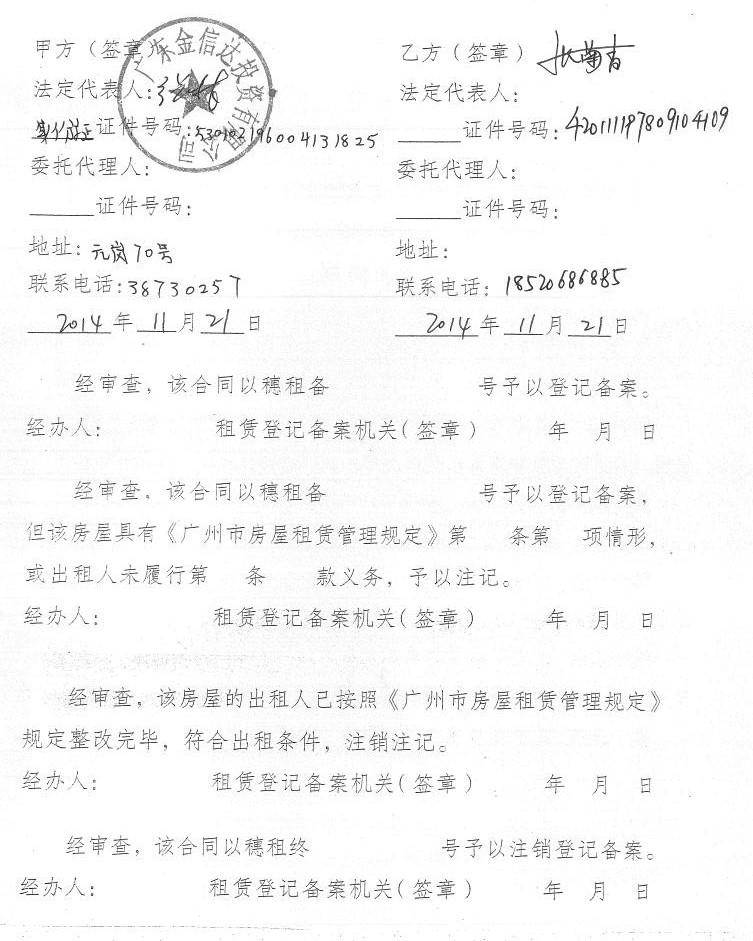 甲方（签章）
广东金信达投资有限公司
法定代表人：
身份证 证件号码：530102196004131825
委托代理人：
______证件号码：
地址：元岗70号
联系电话：38730257
2014 年 11 月 21 日
乙方（签章）
法定代表人：
______证件号码：420111197809104109
委托代理人：
______证件号码：
地址：
联系电话：18520686885
2014 年 11 月 21 日
经审查，该合同以穗租备 号予以登记备案。
经办人： 租赁登记备案机关（签章） 年 月 日
经审查，该合同以穗租备 号予以登记备案，
但该房屋具有《广州市房屋租赁管理规定》第 条第 项情形，
或出租人未履行第 条 款义务，予以注记。
经办人： 租赁登记备案机关（签章） 年 月 日
经审查，该房屋的出租人已按照《广州市房屋租赁管理规定》
规定整改完毕，符合出租条件，注销注记。
经办人： 租赁登记备案机关（签章） 年 月 日
经审查，该合同以穗租终 号予以注销登记备案。
经办人： 租赁登记备案机关（签章） 年 月 日